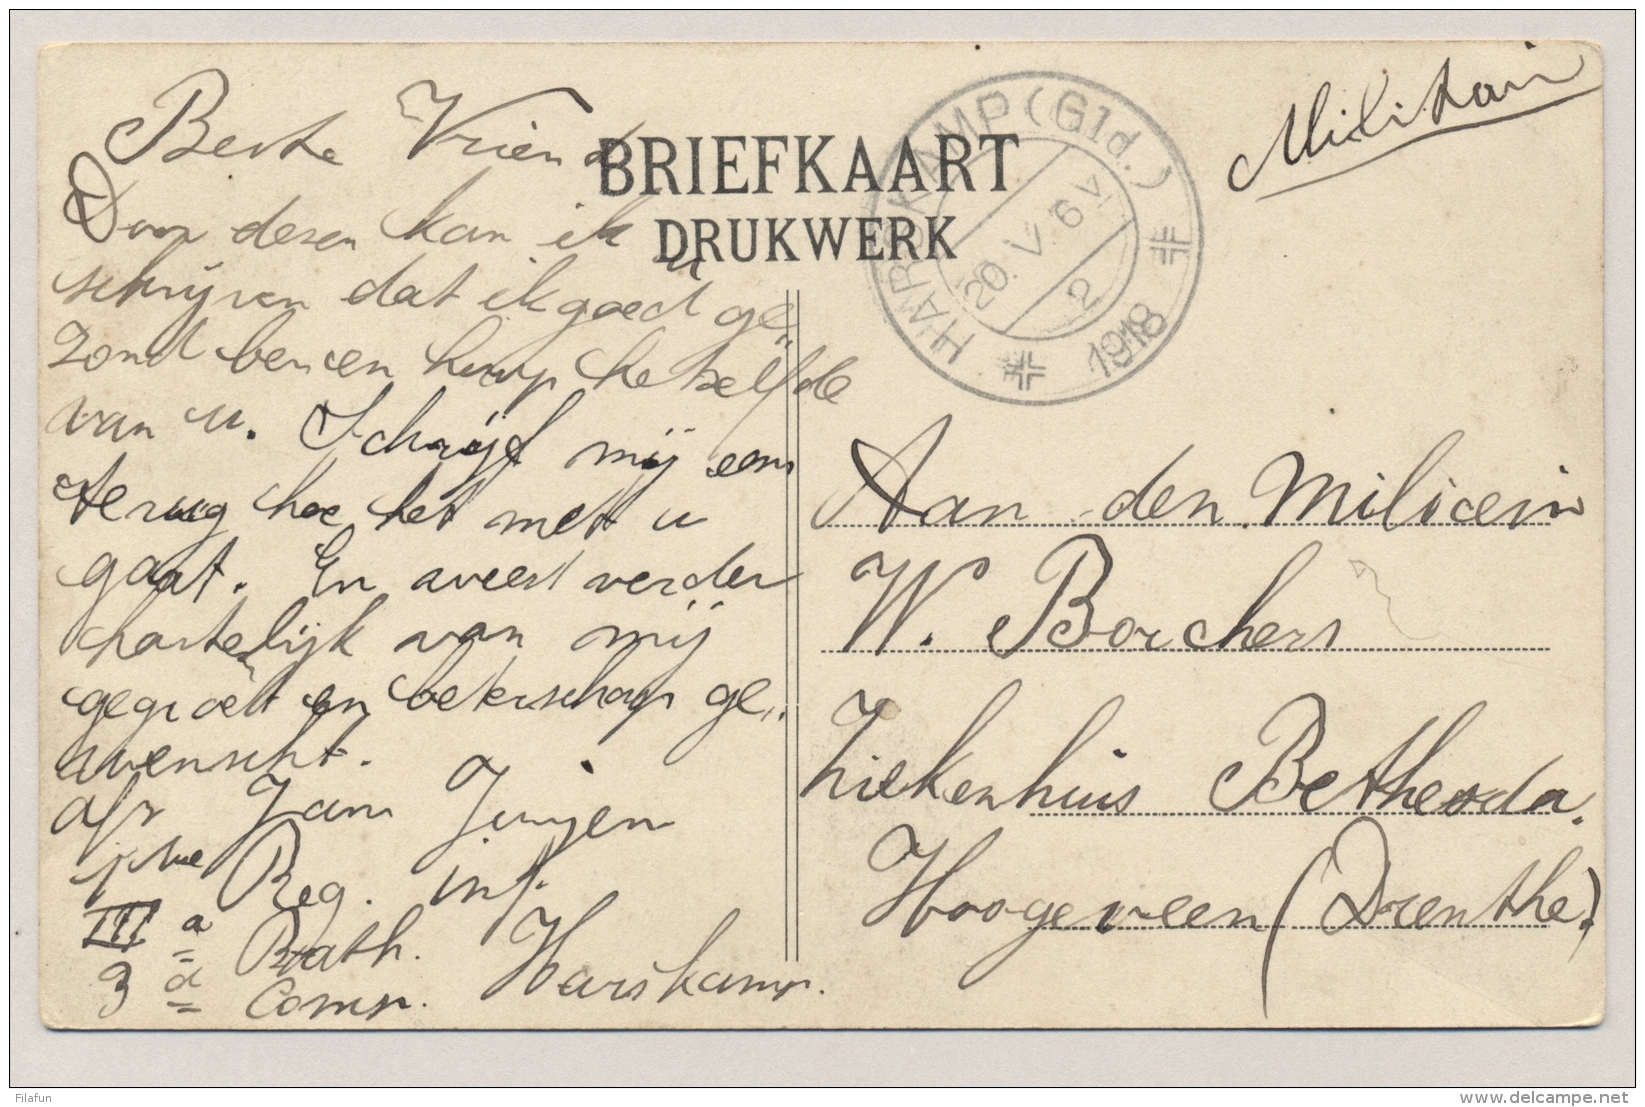 Beste Vriend
Door desen kan ik u
schrijven dat ik goed ge„
zond ben en hoop hetzelfde
van u. Schrijf mij eens
terug hoe het met u
gaat. En weest verder
hartelijk van mij
gegroet en beterschap ge„
wenscht.
afz Jan
Reg. inf.
III a Bath.
3 d Comp. Harskamp.
BRIEFKAART
DRUKWERK
HARSKAMP (Gld.)
20.V. 6V
2
1918
Militair
Aan den Milicein
W. Borchers
Ziekenhuis Bethesda.
Hoogeveen (Drenthe)
Filafun
www.delcampe.net